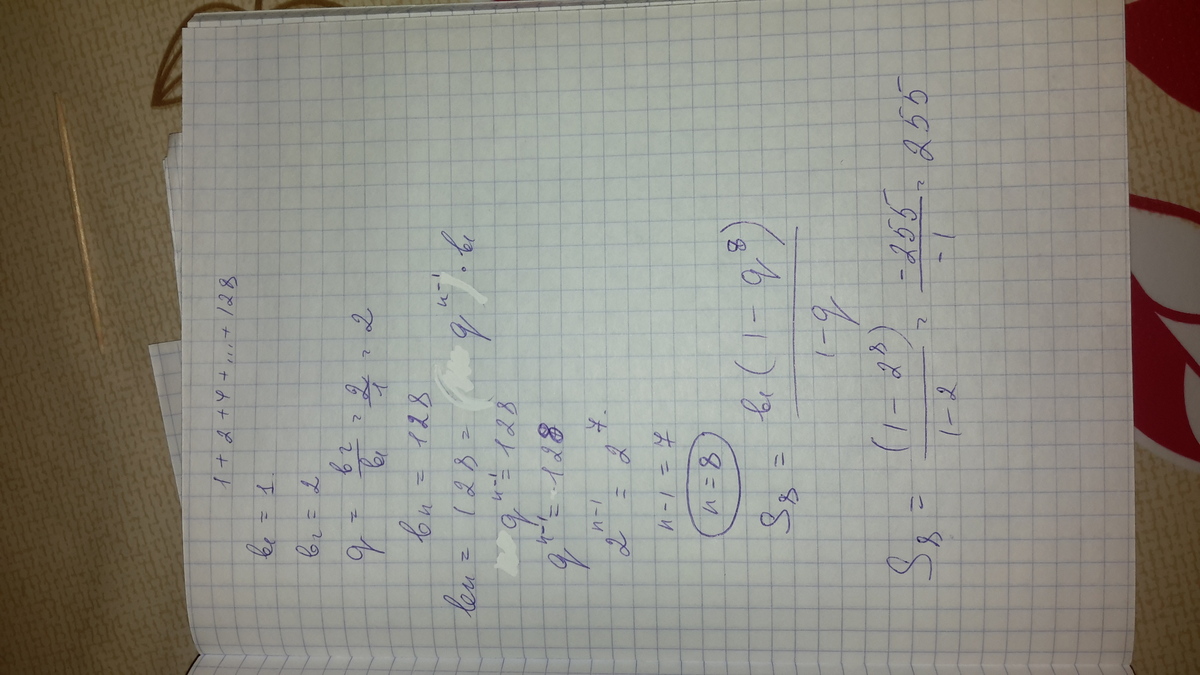 1 + 2 + 4 + ... + 128
b₁ = 1
b₂ = 2
q = b₂/b₁ = 2/1 = 2
bn = 128
bn = 128 = qⁿ⁻¹ · b₁
qⁿ⁻¹ = 128
qⁿ⁻¹ = 128
2ⁿ⁻¹ = 2⁷.
n-1 = 7
n = 8
S₈ = b₁(1 - q⁸)/1-q
S₈ = (1 - 2⁸)/1-2 = -255/-1 = 255